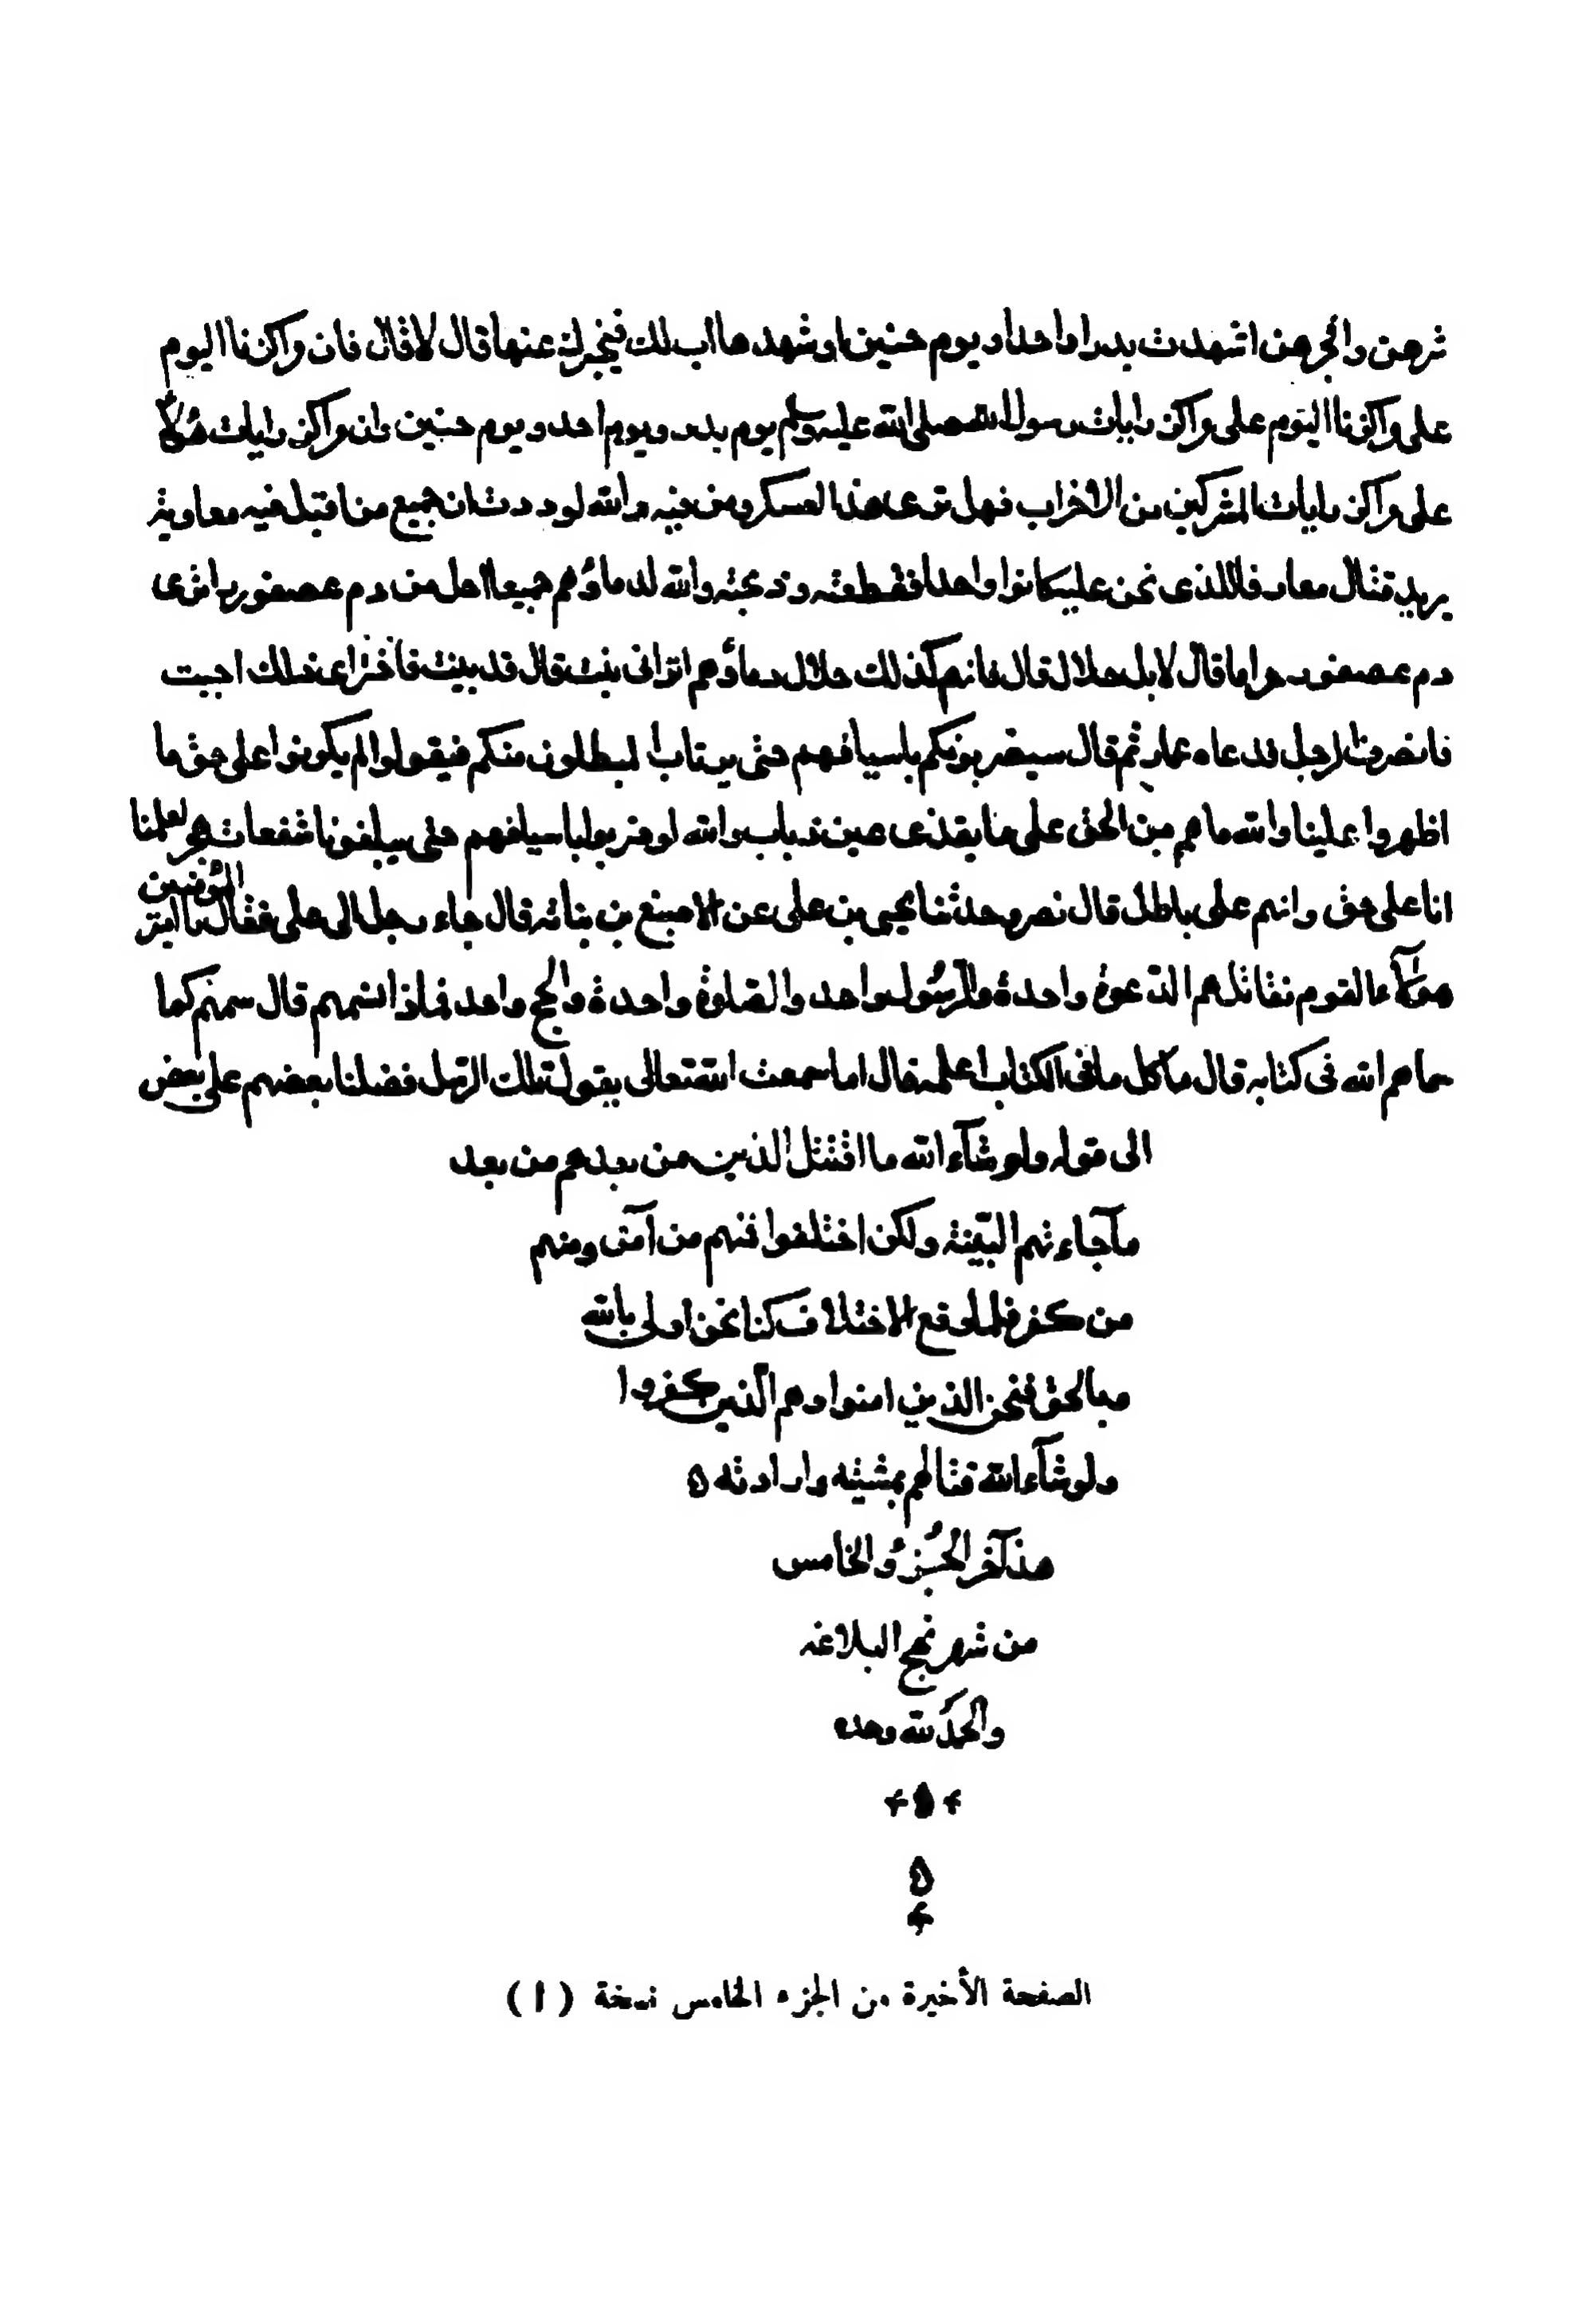 شرهن وافجرهن اشهدت بدرا واحدا ويوم حنين او شهدها اب لك فيخبرك عنها قال لا قال فان مراكزنا اليوم
على مراكزنا اليوم على مراكز رايات رسول الله صلى الله عليه وسلم يوم بدر ويوم احد ويوم حنين وان مراكز رايات هؤلاء
على مراكز رايات المشركين من الاحزاب فهل ترى هذا العسكر ومن فيه والله لوددت ان جميع من اقبل فيه معاوية
يريد قتال معار فا للذى نحن عليه كانوا واحدا فقطعته وذبحته والله لدماؤهم جميعا احل من دم عصفور اترى
دم عصفور حراما قال لا بل حلال قال فانهم كذلك حلال دماؤهم اترانى بينت قال قد بينت فاختر اى ذلك احببت
فانصرف الرجل فدعاه عمار ثم قال سيضربونكم باسيافهم حتى يرتاب المبطلون منكم فيقولوا لو لم يكونوا على حق ما
اظهروا علينا والله ما هم من الحق على ما يقذى عين ذباب والله لو ضربونا باسيافهم حتى يبلغونا شفعات هجر لعلمنا
انا على حق وانهم على باطل قال نصر وحدثنا يحيى بن على عن الاصبغ بن بناته قال جاء رجل الى على فقال يا امير المؤمنين
هؤلاء القوم نقاتلهم الدعوة واحدة والرسول واحد والصلوة واحدة والحج واحد فماذا نسميهم قال سمهم كما
سماهم الله فى كتابه قال ما كل ما فى الكتاب اعلمه قال اما سمعت الله تعالى يقول تلك الرسل فضلنا بعضهم على بعض
الى قوله ولو شآء الله ما اقتتل الذين من بعدهم من بعد
مآ جاءتهم البينة ولكن اختلفوا فمنهم من آمن ومنهم
من كفر فلما وقع الاختلاف كنا نحن اولى بالله
وبالحق فنحن الذين امنوا وهم الذين كفروا
ولو شآء الله قتالهم بمشيته وارادته ه
هذا آخر الجزؤ الخامس
من شرح نهج البلاغه
والحمد لله وحده
ه
ه
الصفحة الأخيرة من الجزء الخامس نسخة ( ا )